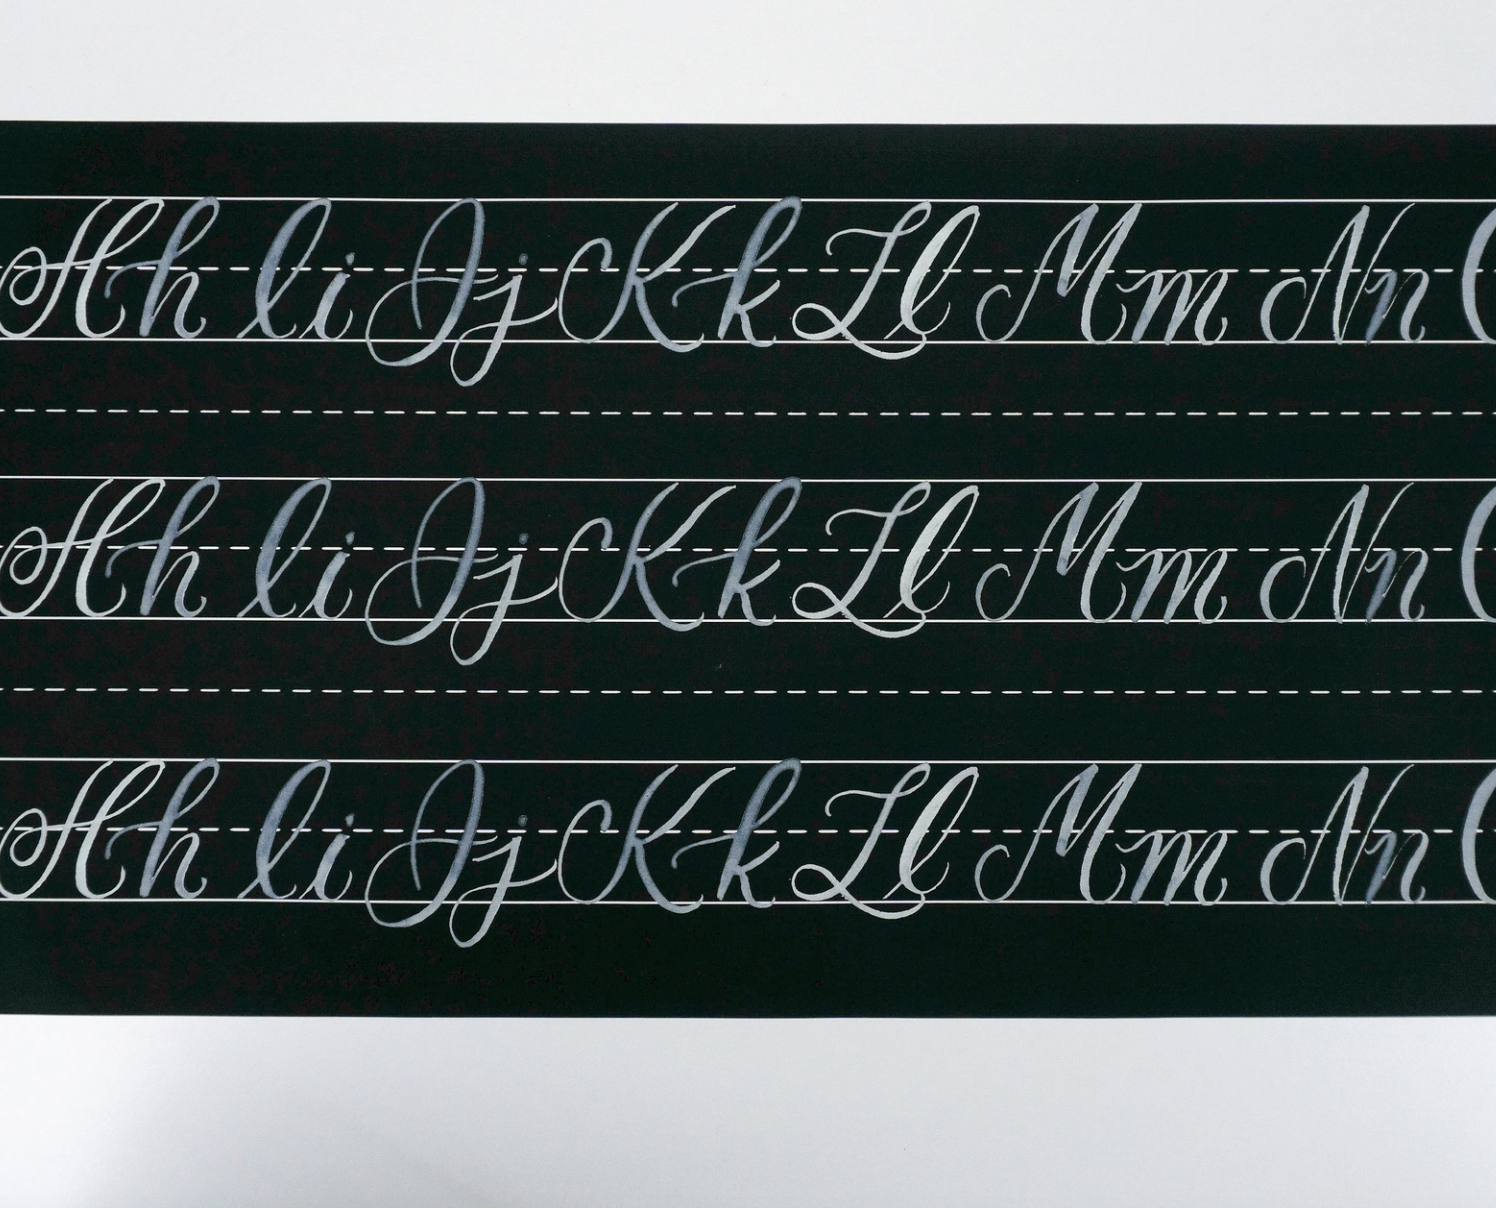 Hh Ii Jj Kk Ll Mm Nn
Hh Ii Jj Kk Ll Mm Nn
Hh Ii Jj Kk Ll Mm Nn